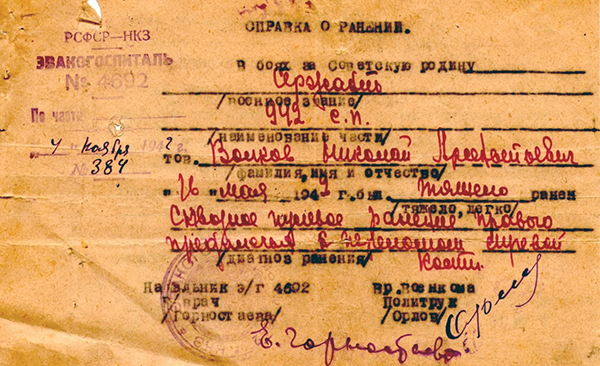 СПРАВКА О РАНЕНИИ.
РСФСР—НКЗ
ЭВАКОГОСПИТАЛЬ
№ 4692
По части
"4" ноября 1942
№ 384
В боях за Советскую родину
сержант
/военное звание/
992 с.п.
/наименование части/
тов. Волков Николай
/фамилия, имя и отчество/
"16" мая 1942 г. был тяжело ранен
/тяжело, легко/
сквозное пулевое ранение правого
предплечья с переломом лучевой
/диагноз ранения/ кости.
Начальник э/г 4692 вр. Военкома
Военврач Политрук
/Горностаева/ /Орлов/
Е. Горностаева